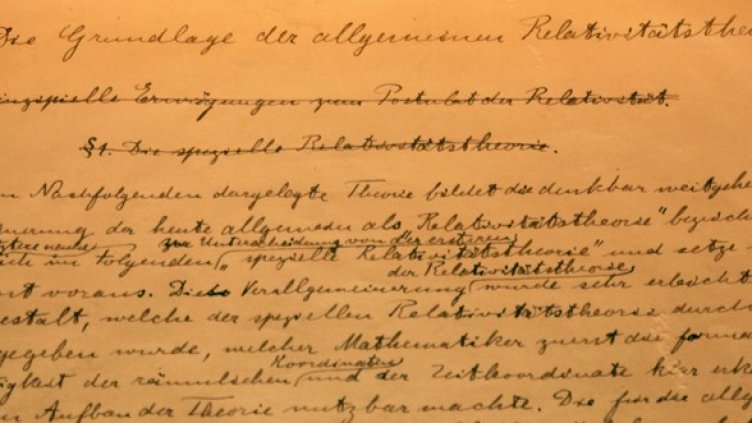 Die Grundlage der allgemeinen Relativitätsthe
inzipielle Erwägungen zum Postulat der Relativität.
§1. Die spezielle Relativitätstheorie.
m Nachfolgenden dargelegte Theorie bildet die denkbar weitgehe
inerung der heute allgemein als „Relativitätstheorie" bezeich
letztere nenne zur Unterscheidung von der ersteren
ich im Folgenden „spezielle Relativitätstheorie" und setze
der Relativitätstheorie
nt voraus. Diese Verallgemeinerung wurde sehr erleicht
estalt, welche der speziellen Relativitätstheorie durch
gegeben wurde, welcher Mathematiker zuerst die forma
Koordinaten
igkeit der räumlichen und der Zeitkoordinate klar erk
n Aufbau der Theorie nutzbar machte. Die für die allg